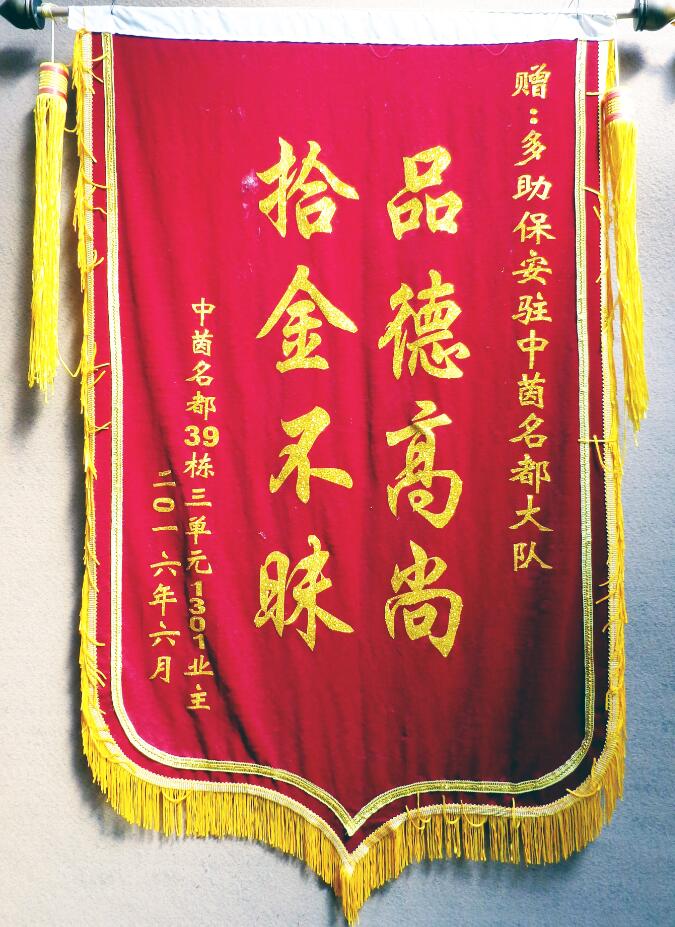 赠:多助保安驻中茵名都大队
品德高尚
拾金不昧
中茵名都39栋三单元1301业主
二〇一六年六月